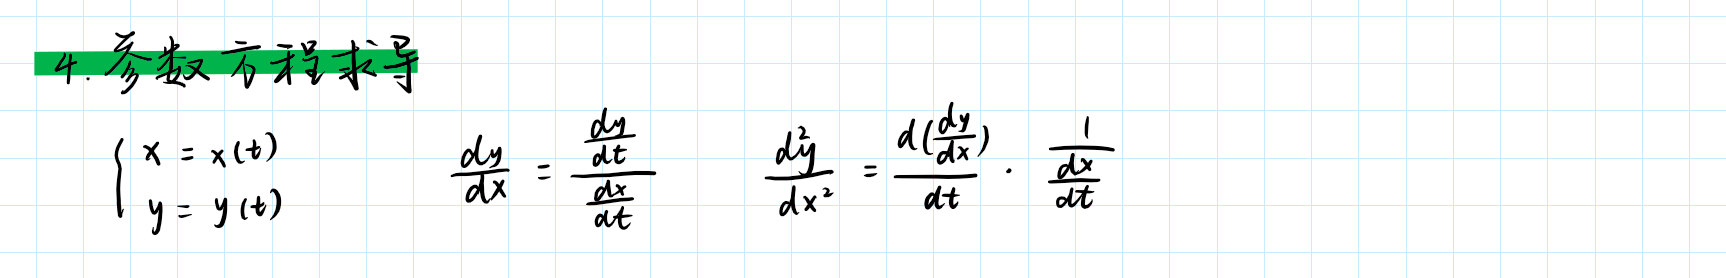 4. 参数方程求导
{ x = x(t)  y = y(t)    dy/dx = (dy/dt)/(dx/dt)    d²y/dx² = d(dy/dx)/dt · 1/(dx/dt)